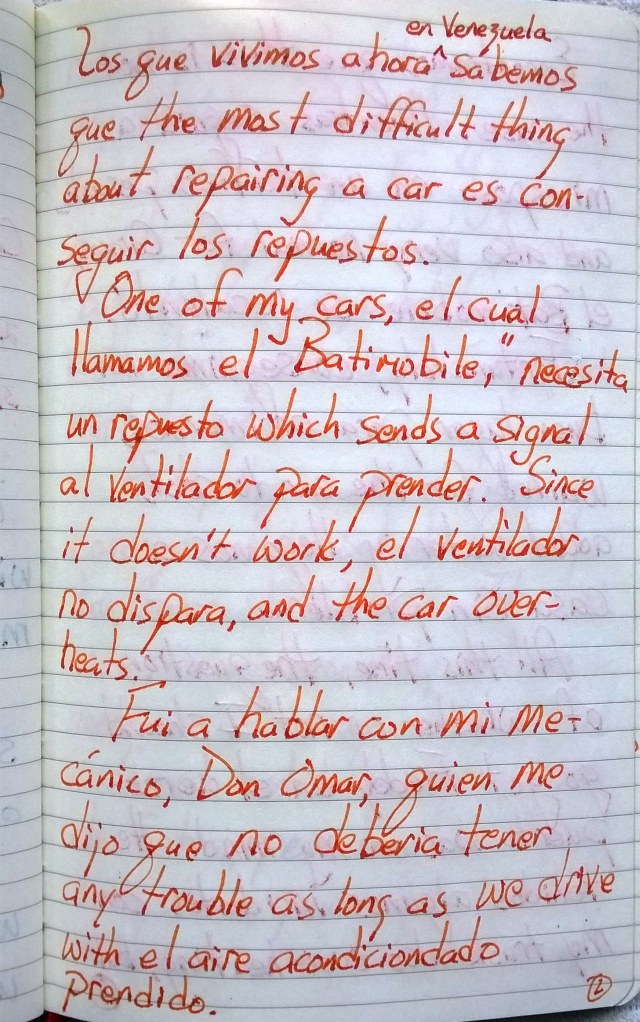 en Venezuela
Los que vivimos ahora ^ sabemos
que the most difficult thing
about repairing a car es con-
seguir los repuestos.
One of my cars, el cual
llamamos el Batimobile," necesita
un repuesto which sends a signal
al ventilador para prender. Since
it doesn't work, el ventilador
no dispara, and the car over-
heats.
Fui a hablar con mi me-
cánico, Don Omar, quien me
dijo que no deberia tener
any trouble as long as we drive
with el aire acondiciondado
prendido.
72